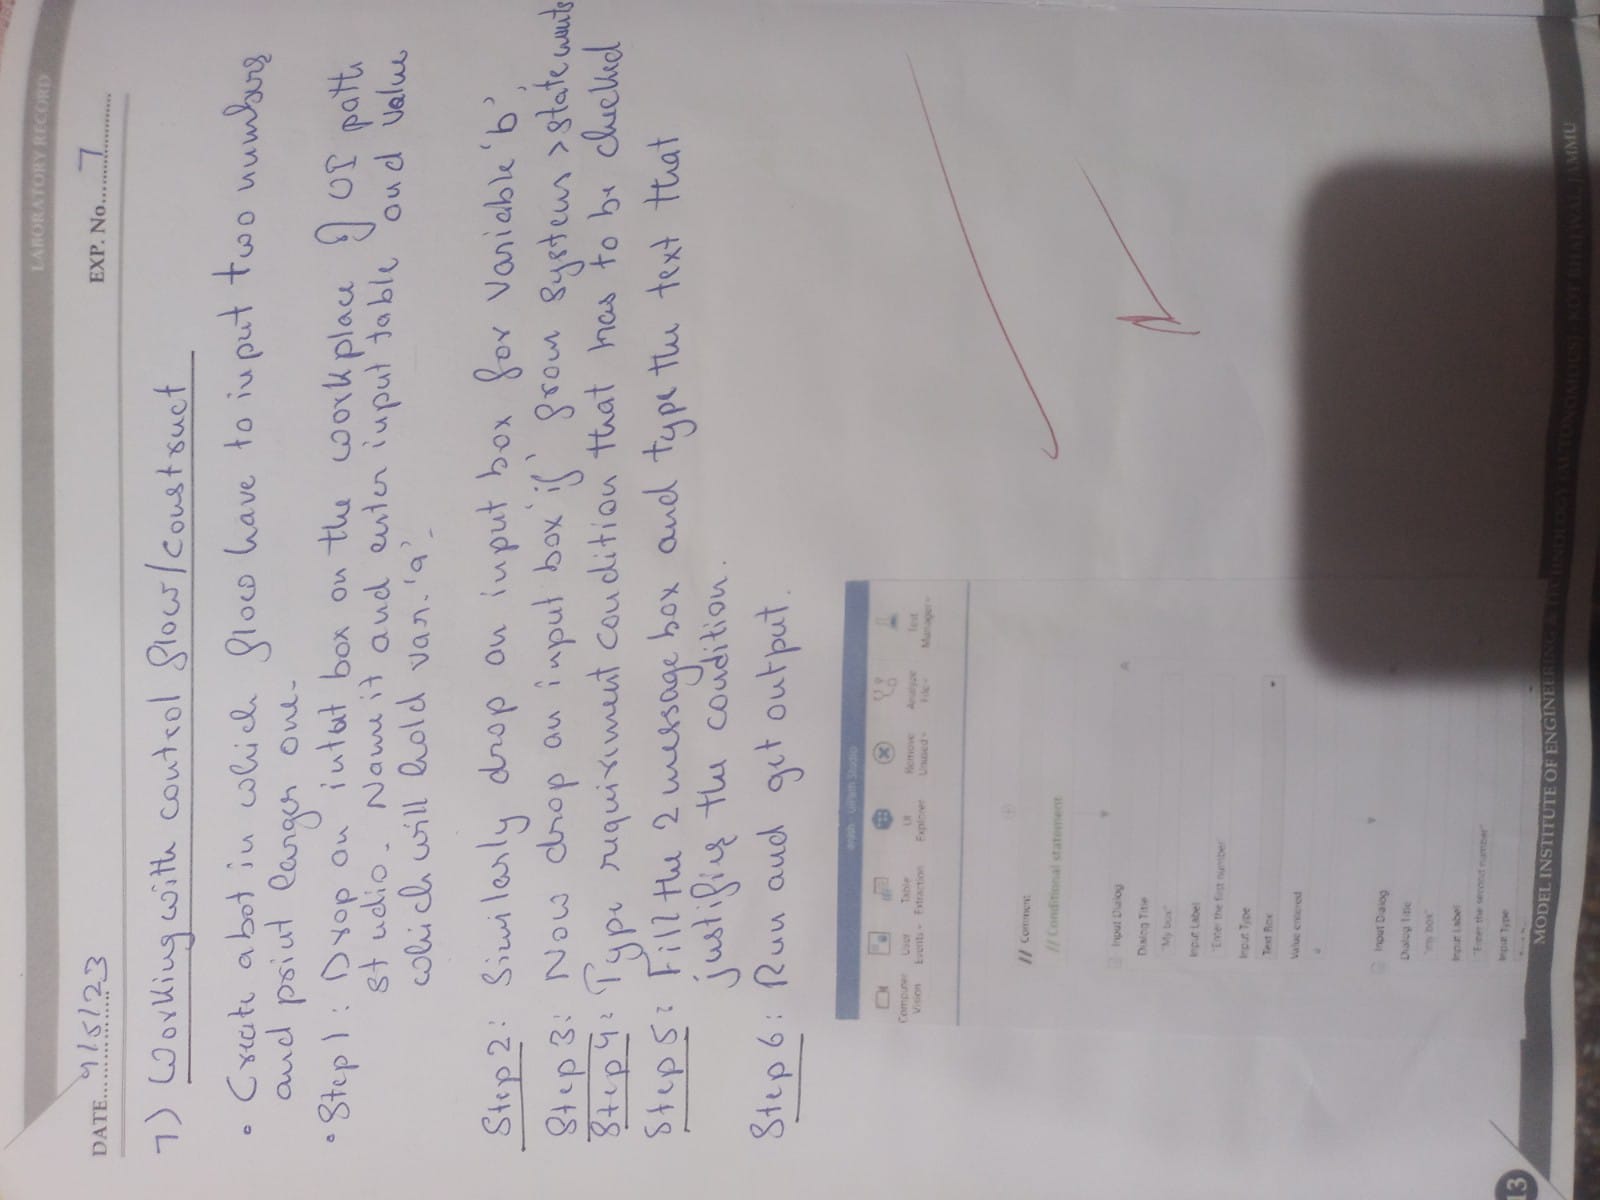 LABORATORY RECORD
DATE...9/5/23...
EXP. No...7...
7) Working with control flow/construct
• Create abot in which flow have to input two numbers
and print larger one.
• Step 1: Drop on intut box on the workplace of UI path
studio. Name it and enter input table and value
which will hold var. 'a'.
Step 2: Similarly drop on input box for variable 'b'
Step 3: Now drop an input box 'if' from System > statements
Step 4: Type requirement condition that has to be checked
Step 5: Fill the 2 message box and type the text that
justifies the condition.
Step 6: Run and get output.
UiPath Studio
Computer Vision
User Events
Table Extraction
UI Explorer
Remove Unused
Analyze File
Test Manager
// Comment
// Conditional statement
Input Dialog
Dialog Title
"My box"
Input Label
"Enter the first number"
Input Type
Text Box
Value entered
a
Input Dialog
Dialog Title
"my box"
Input Label
"Enter the second number"
Input Type
MODEL INSTITUTE OF ENGINEERING & TECHNOLOGY (AUTONOMOUS), KOT BHALWAL, JAMMU
13